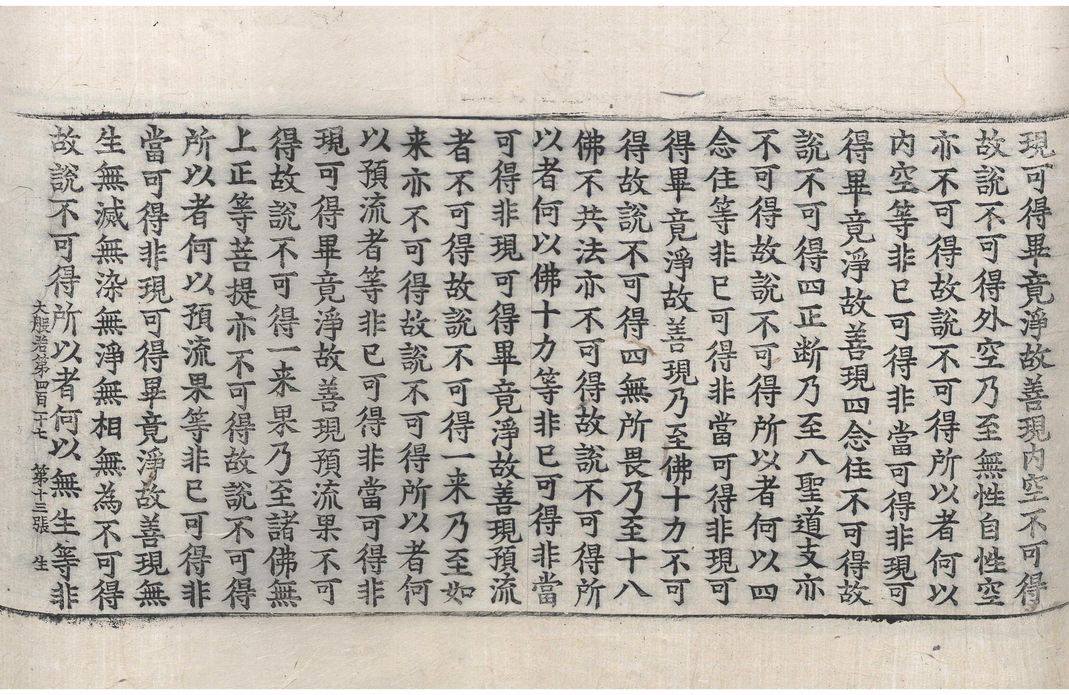 現可得畢竟淨故善現内空不可得
故說不可得外空乃至無性自性空
亦不可得故說不可得所以者何以
内空等非已可得非當可得非現可
得畢竟淨故善現四念住不可得故
說不可得四正断乃至八聖道支亦
不可得故說不可得所以者何以四
念住等非已可得非當可得非現可
得畢竟淨故善現乃至佛十力不可
得故說不可得四無所畏乃至十八
佛不共法亦不可得故說不可得所
以者何以佛十力等非已可得非當
可得非現可得畢竟淨故善現預流
者不可得故說不可得一来乃至如
来亦不可得故說不可得所以者何
以預流者等非已可得非當可得非
現可得畢竟淨故善現預流果不可
得故說不可得一来果乃至諸佛無
上正等菩提亦不可得故說不可得
所以者何以預流果等非已可得非
當可得非現可得畢竟淨故善現無
生無滅無染無淨無相無為不可得
故說不可得所以者何以無生等非
大般若第四百二十七 第十三張 生